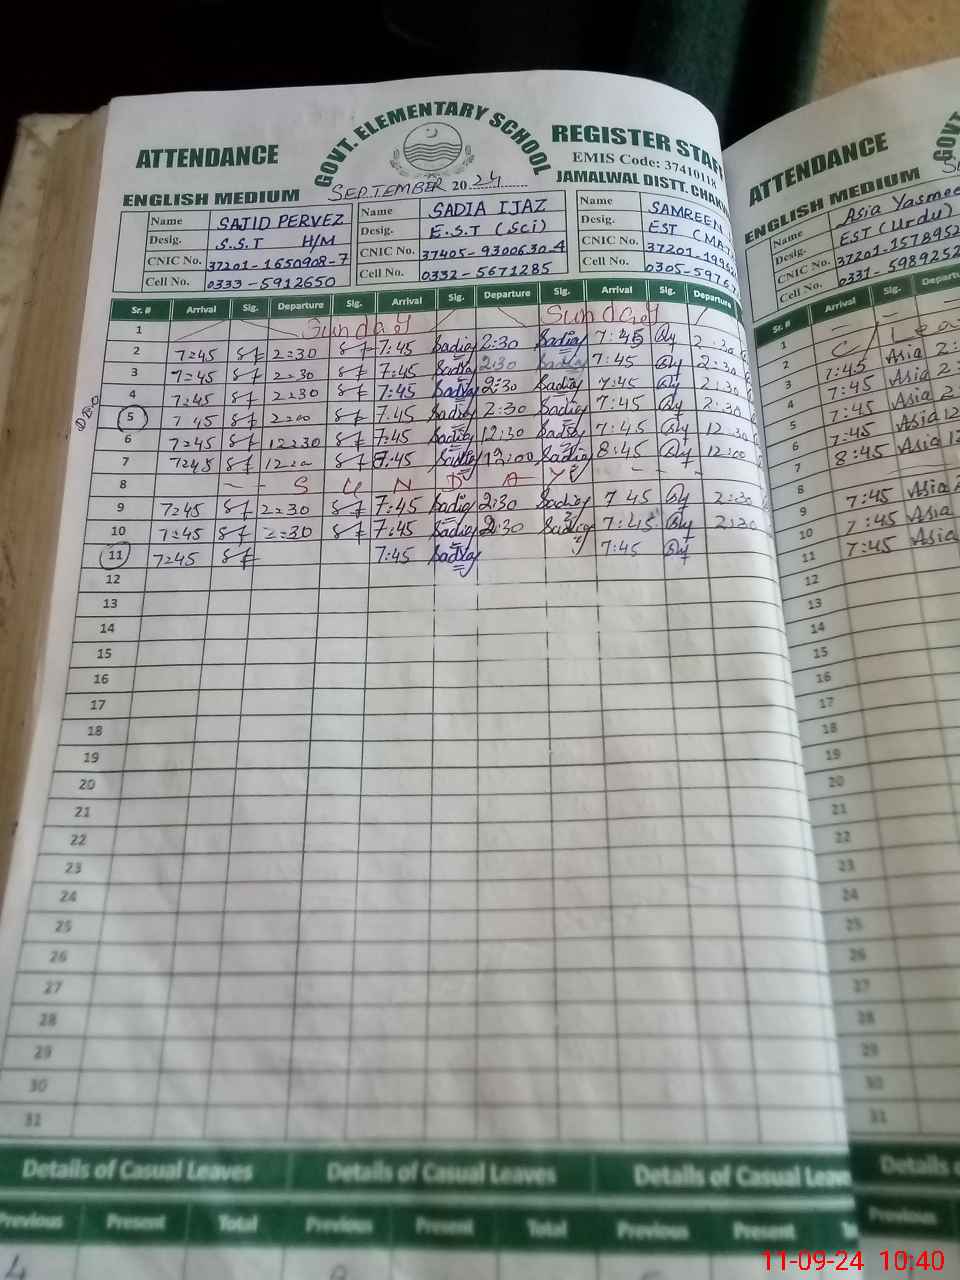 GOVT. ELEMENTARY SCHOOL
ATTENDANCE REGISTER STAFF
EMIS Code: 37410118
ENGLISH MEDIUM SEPTEMBER 2024 JAMALWAL DISTT. CHAK
Name SAJID PERVEZ Name SADIA IJAZ Name SAMREEN
Desig. S.S.T H/M Desig. E.S.T (Sci) Desig. EST
CNIC No. 37201-1650908-7 CNIC No. 37405-9300630-4 CNIC No. 37201-
Cell No. 0333-5912650 Cell No. 0332-5671285 Cell No. 0305-
Sr. # Arrival Sig. Departure Sig. Arrival Sig. Departure Sig. Arrival Sig. Departure
1 Sunday Sunday
2 7:45 2:30 7:45 Sadia 2:30 Sadia 7:45 2:30
3 7:45 2:30 7:45 Sadia 2:30 Sadia 7:45 2:30
4 7:45 2:30 7:45 Sadia 2:30 Sadia 7:45 2:30
5 7:45 7:45 Sadia 2:30 Sadia 7:45 2:30
6 7:45 12:30 7:45 Sadia 12:30 Sadia 7:45 12:30
7 7:45 12:00 Sadia 12:00 Sadia 8:45 12:00
8 S U N D A Y
9 7:45 2:30 7:45 Sadia 2:30 Sadia 7 45 2:30
10 7:45 2:30 7:45 Sadia 2:30 Sadia 7:45 2:30
11 7:45 7:45 Sadia 7:45
12
13
14
15
16
17
18
19
20
21
22
23
24
25
26
27
28
29
30
31
Details of Casual Leaves Details of Casual Leaves Details of Casual Leav
Previous Present Total Previous Present Total Previous Present
4
ATTENDANCE
ENGLISH MEDIUM
Name Asia Yasmee
Desig. EST (Urdu)
CNIC No. 37201-1578952
Cell No. 0331-5989252
Sr. # Arrival Sig. Departu
1
2 C/Lea
3 7:45 Asia 2:
4 7:45 Asia 2
5 7:45 Asia 2
6 7:45 Asia 12
7 8:45 Asia 12
8
9 7:45 Asia
10 7:45 Asia
11 7:45 Asia
12
13
14
15
16
17
18
19
20
21
22
23
24
25
26
27
28
29
30
31
Details o
Previous
11-09-24 10:40